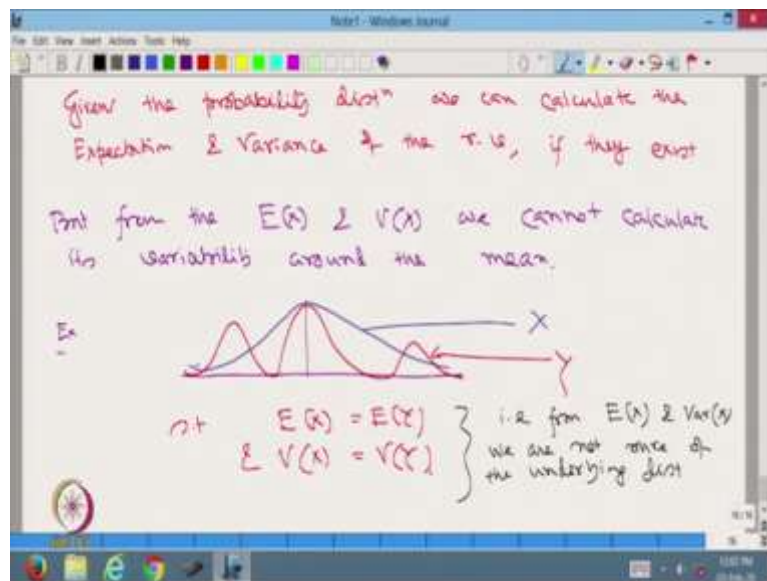 Note1 - Windows Journal
File Edit View Insert Actions Tools Help
Given the probability distⁿ we can calculate the
Expectation & Variance of the r.v, if they exist
But from the E(X) & V(X) we cannot calculate
its variability around the mean.
Ex
X
Y
s.t E(X) = E(Y)
& V(X) = V(Y)
i.e from E(X) & Var(X)
we are not sure of
the underlying dist